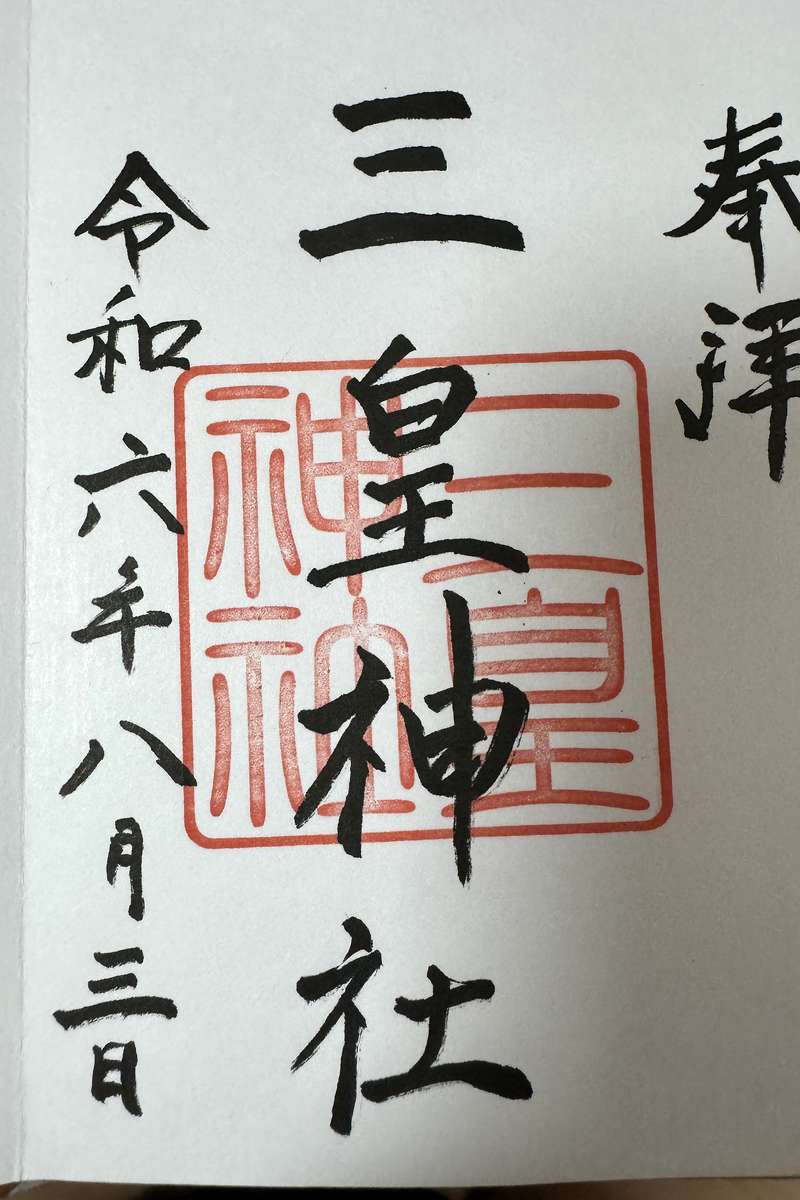 奉拝
三皇神社
三皇
神社
令和六年八月三日